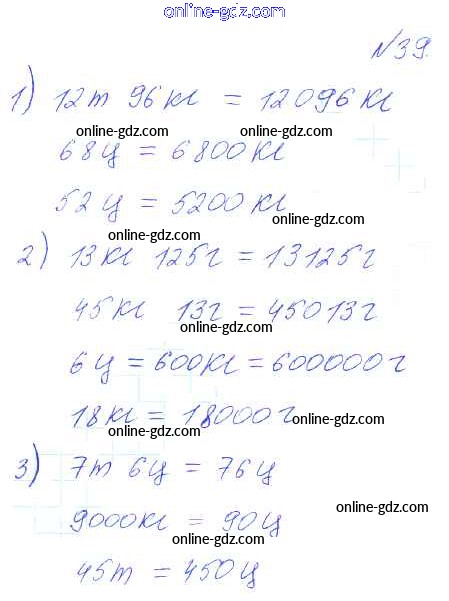 online-gdz.com
№39.
1) 12т 96кг = 12096кг
online-gdz.com online-gdz.com
68ц = 6800кг
52ц = 5200кг
online-gdz.com
online-gdz.com
2) 13кг 125г = 13125г
45кг 13г = 45013г
online-gdz.com
6ц = 600кг = 600000г
18кг = 18000г
online-gdz.com online-gdz.com
3) 7т 6ц = 76ц
9000кг = 90ц
online-gdz.com
online-gdz.com
45т = 450ц